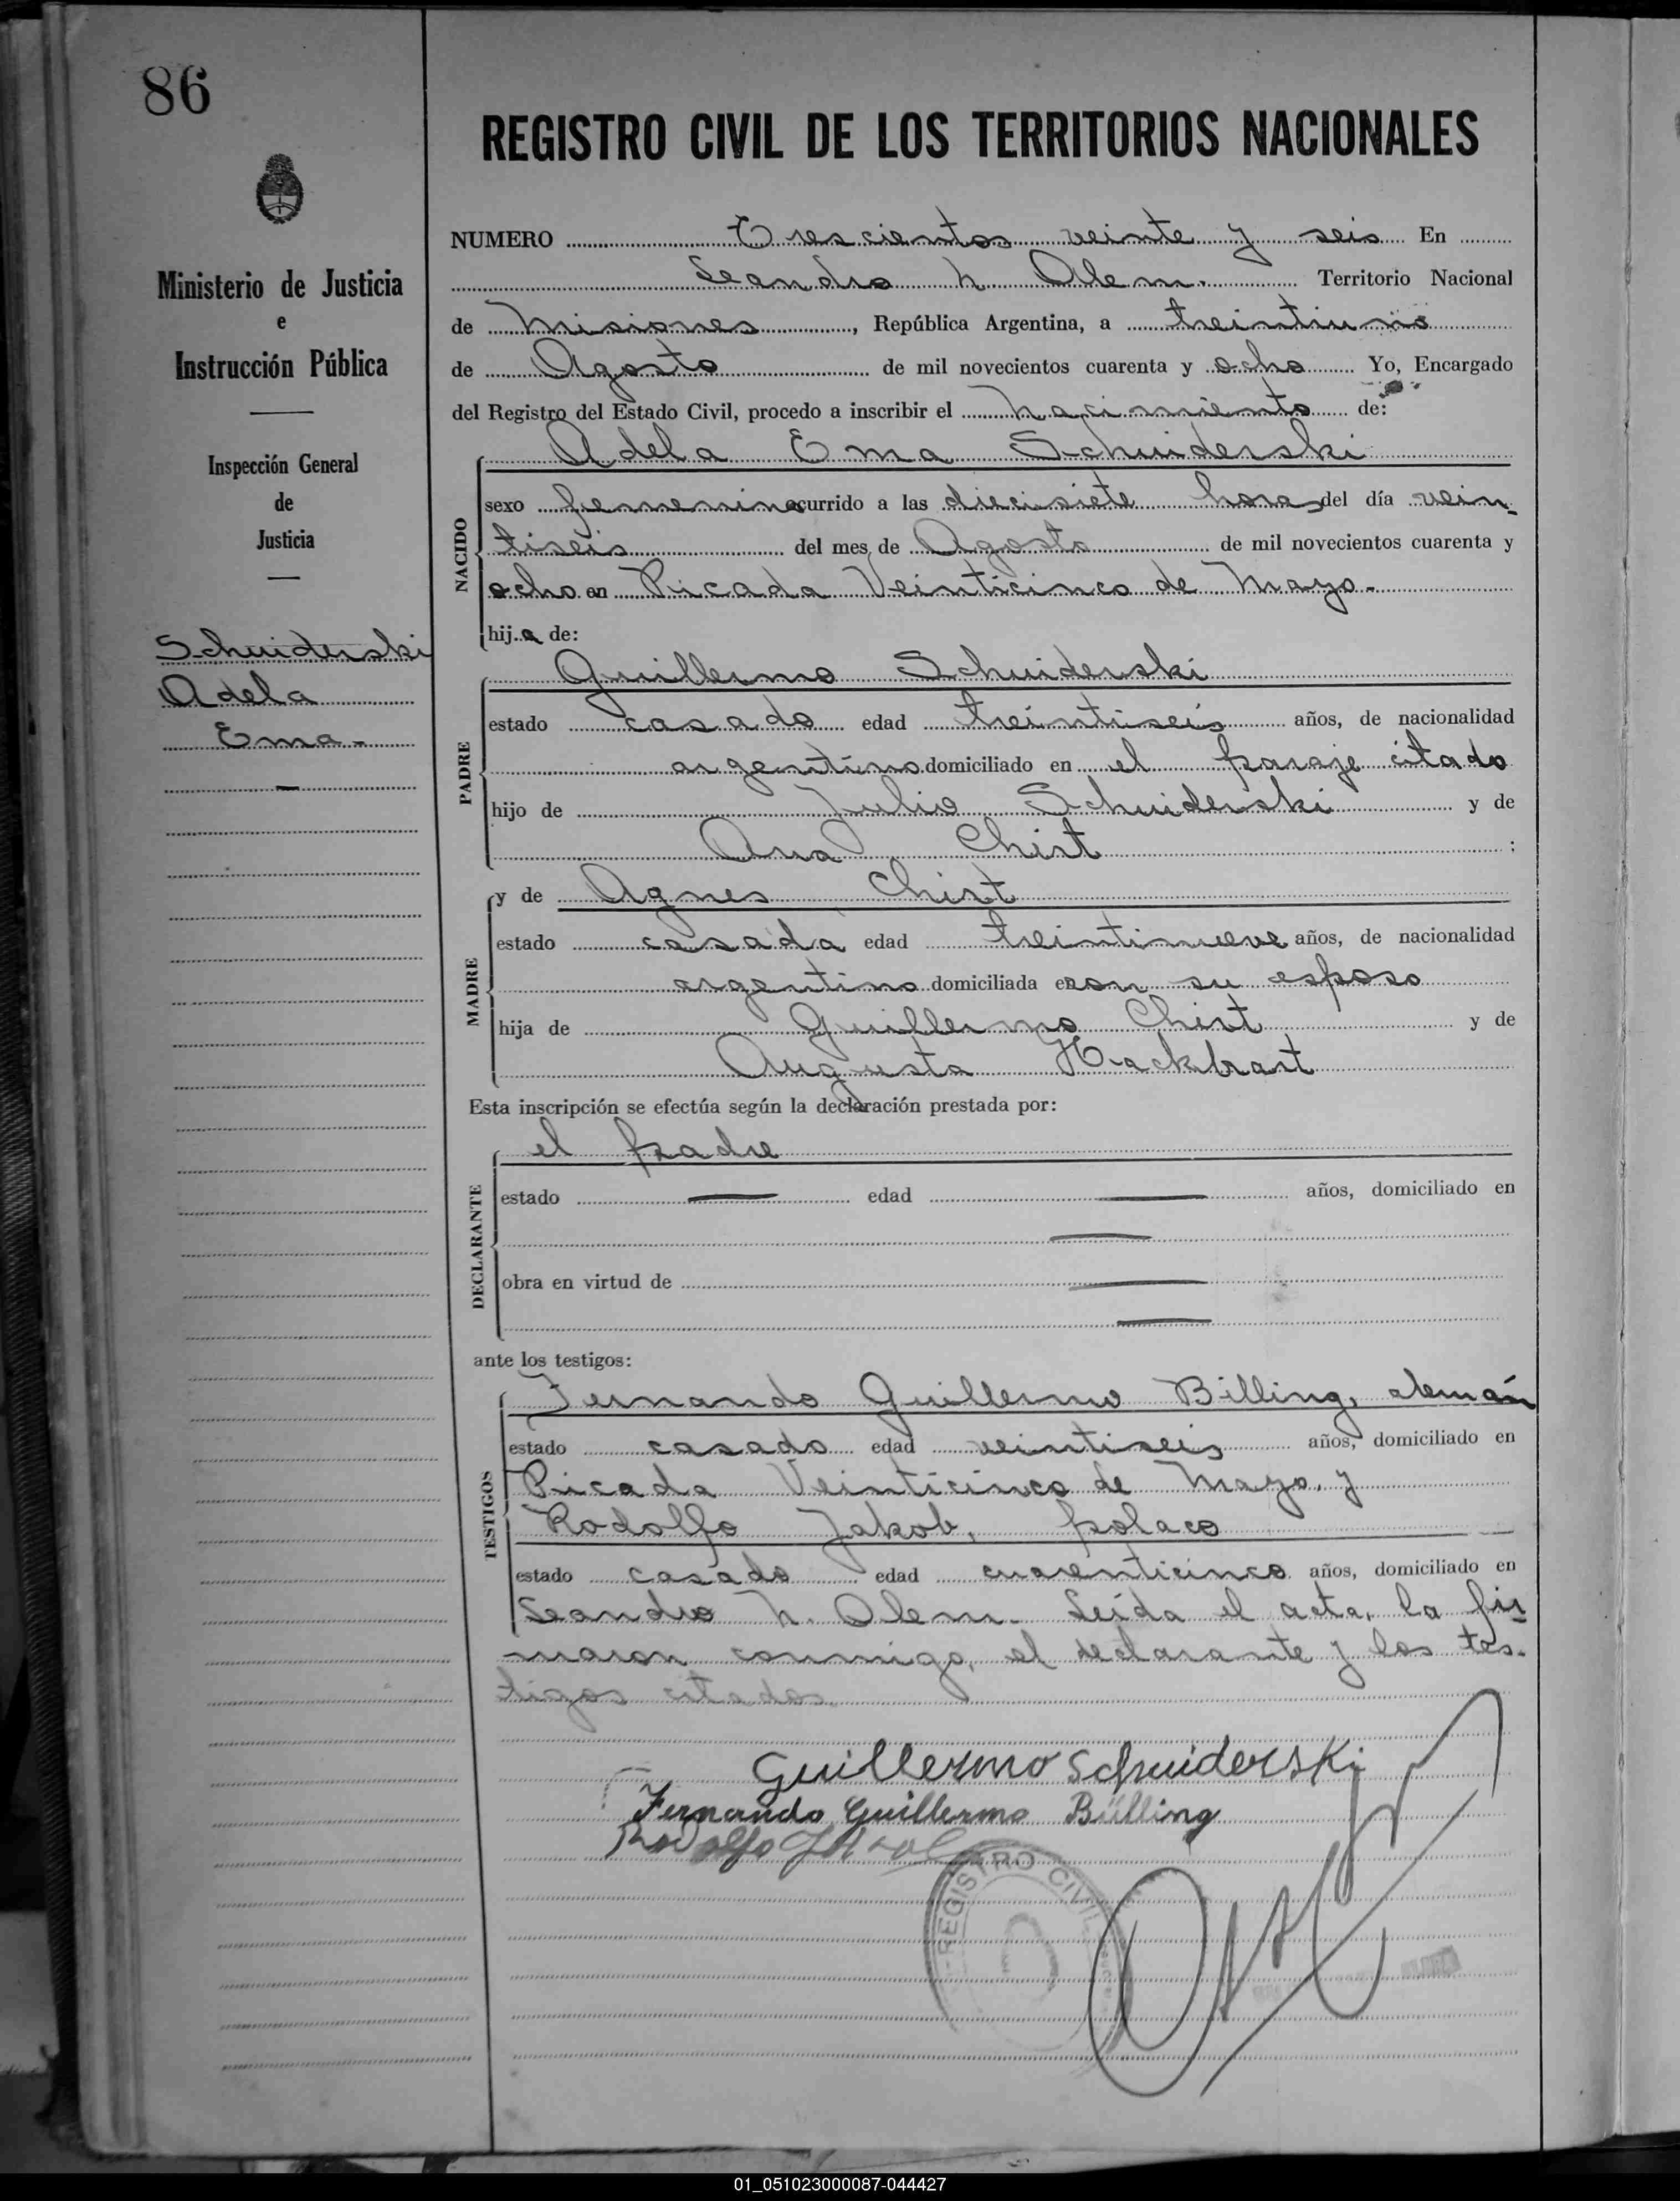 86
REGISTRO CIVIL DE LOS TERRITORIOS NACIONALES
Ministerio de Justicia
e
Instrucción Pública
Inspección General
de
Justicia
Schuiderski
Adela
Ema.-
NUMERO Trescientos veinte y seis En
Leandro N Alem. Territorio Nacional
de Misiones, República Argentina, a treintiuno
de Agosto de mil novecientos cuarenta y ocho Yo, Encargado
del Registro del Estado Civil, procedo a inscribir el nacimiento de:
Adela Ema Schuiderski
NACIDO
sexo femenino ocurrido a las diecisiete horas del día vein-
tiseis del mes de Agosto de mil novecientos cuarenta y
ocho en Picada Veinticinco de Mayo.-
hija de:
Guillermo Schuiderski
PADRE
estado casado edad treintiseis años, de nacionalidad
argentino domiciliado en el paraje citado
hijo de Julio Schuiderski y de
Ana Chist :
MADRE
y de Agnes Chist
estado casada edad treintinueve años, de nacionalidad
argentina domiciliada con su esposo
hija de Guillermo Chist y de
Augusta Hackbart
Esta inscripción se efectúa según la declaración prestada por:
DECLARANTE
el padre
estado — edad — años, domiciliado en
—
obra en virtud de —
—
ante los testigos:
TESTIGOS
Fernando Guillermo Billing, alemán
estado casado edad veintiseis años, domiciliado en
Picada Veinticinco de Mayo, y
Rodolfo Jakob, polaco
estado casado edad cuarenticinco años, domiciliado en
Leandro N. Alem. Leída el acta, la fir-
maron conmigo, el declarante y los tes-
tigos citados.
Guillermo Schuiderski
Fernando Guillermo Bülling
Rodolfo
REGISTRO CIVIL
01_051023000087-044427